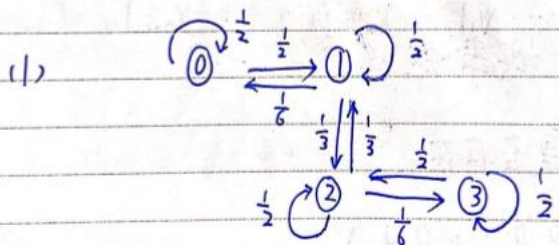 (1) ⓪ 1/2 1/2 ① 1/2
1/6
1/3 1/3 1/2
1/2 ② ③ 1/2
1/6